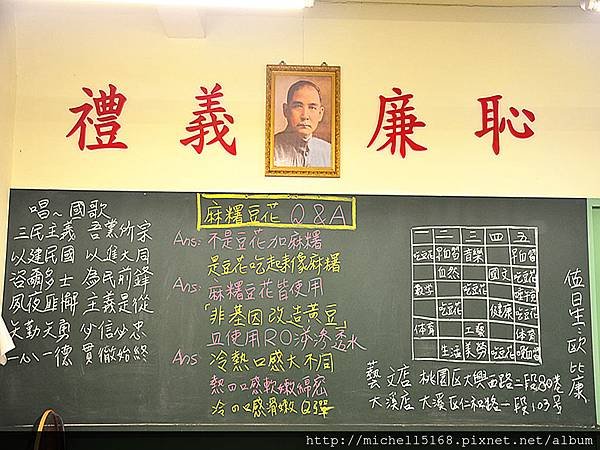 禮 義 廉 恥
唱~國歌
三民主義 吾黨所宗
以建民國 以進大同
咨爾多士 為民前鋒
夙夜匪懈 主義是從
矢勤矢勇 必信必忠
一心一德 貫徹始終
麻糬豆花 Q&A
Ans: 不是豆花加麻糬
是豆花吃起來像麻糬
Ans: 麻糬豆花皆使用
「非基因改造黃豆」
且使用RO逆滲透水
Ans: 冷熱口感大不同
熱の口感軟嫩綿密
冷の口感滑嫩Q彈
一 二 三 四 五
吃豆花 早自習 音樂 早自習
自然 國文 吃豆花
數學 吃豆花
吃豆花 健康 吃豆花
體育 工藝 體育
生活 美勞 吃豆花
值日生:歐比康
藝文店 桃園區大興西路二段80巷
大溪店 大溪區仁和路一段103號
http://michell5168.pixnet.net/album